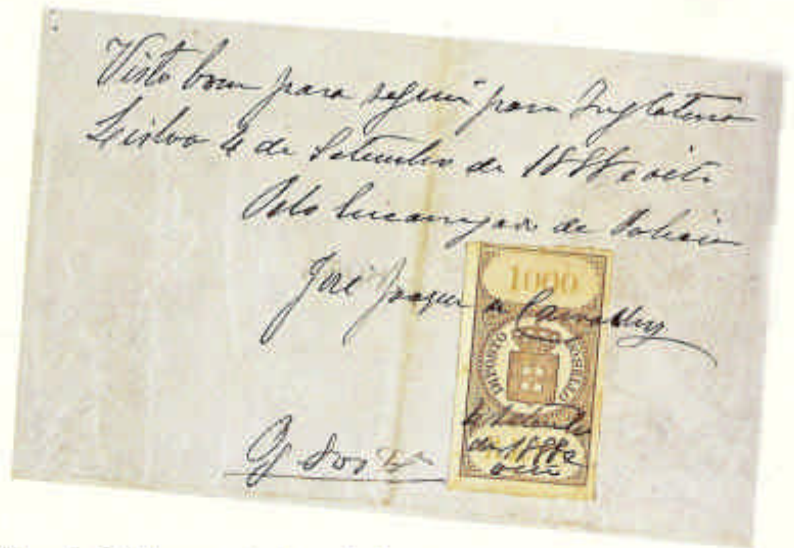 Visto bom para seguir para Inglaterra
Lisboa 4 de Setembro de 1888 e oito
Pelo Encarregado de Policia
José Joaquim de Carvalho
1000
IMPOSTO DO SELLO
4 Setembro
de 1888 e
oito